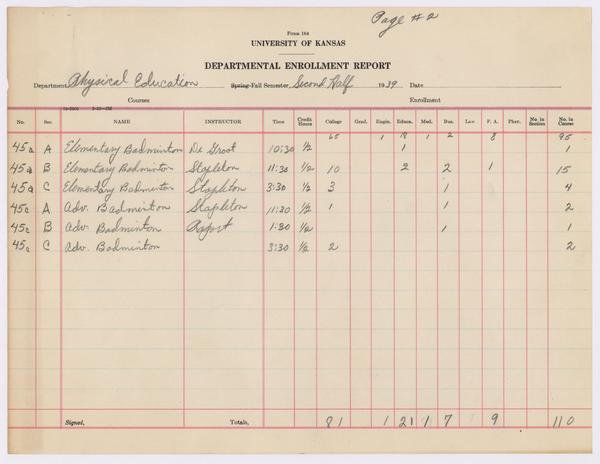 Page #2
Form 164
UNIVERSITY OF KANSAS
DEPARTMENTAL ENROLLMENT REPORT
Department, Physical Education Spring-Fall Semester, Second Half 1939 Date
Courses Enrollment
No. Sec. NAME INSTRUCTOR Time Credit Hours College Grad. Engin. Educa. Med. Bus. Law F. A. Phar. No. in Section No. in Course
65 1 18 1 2 8 95
45a A Elementary Badminton De Groot 10:30 1/2 1 1
45a B Elementary Badminton Stapleton 11:30 1/2 10 2 2 1 15
45a C Elementary Badminton Stapleton 3:30 1/2 3 1 4
45c A Adv. Badminton Stapleton 11:30 1/2 1 1 2
45c B Adv. Badminton 1:30 1/2 1 1
45c C Adv. Badminton 3:30 1/2 2 2
Signed, Totals, 81 1 21 1 7 9 110